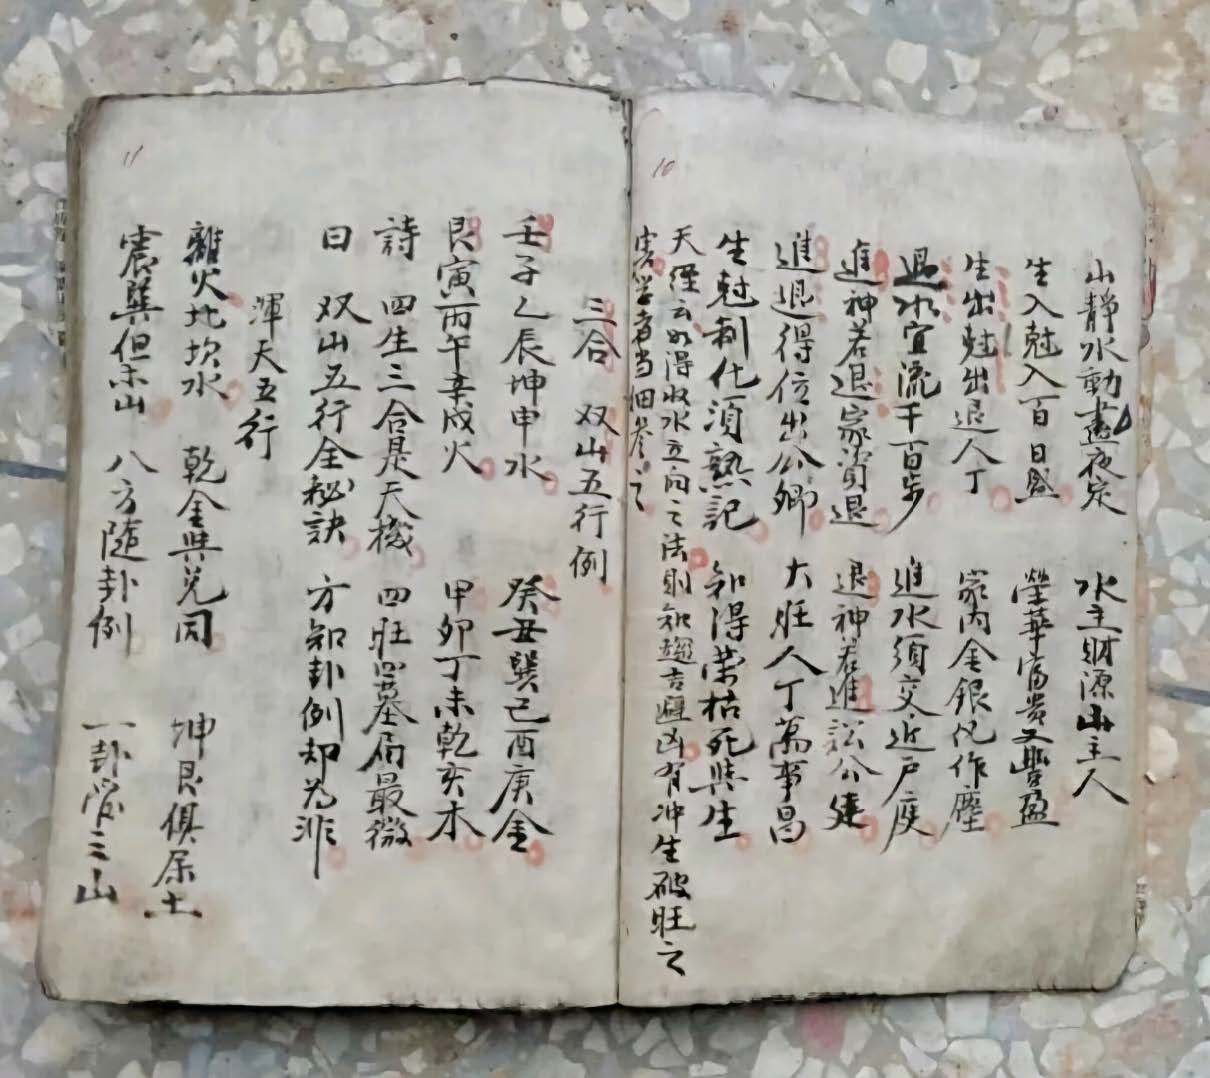 10
山靜水動晝夜定 水主財源山主人
生入尅入百日盛 榮華富貴又豐盈
生出尅出退人丁 家內金銀化作塵
退水宜流千百步 進水須交近戶庭
進神若退家資退 退神若進訟公建
進退得位出公卿 大旺人丁萬事昌
生尅制化須熟記 知得榮枯死與生
天經云如得收水立向之法則知趨吉避凶有冲生破旺之
害学者当细参之
11
三合 双山五行例
壬子乙辰坤申水 癸丑巽己酉庚金
艮寅丙午辛戍火 甲卯丁未乾亥木
詩 四生三合是天機 四旺四墓局最微
曰 双山五行全秘訣 方知卦例却为非
渾天五行
離火北坎水 乾金與兌同 坤艮俱屬土
震巽但木山 八方随卦例 一卦管三山